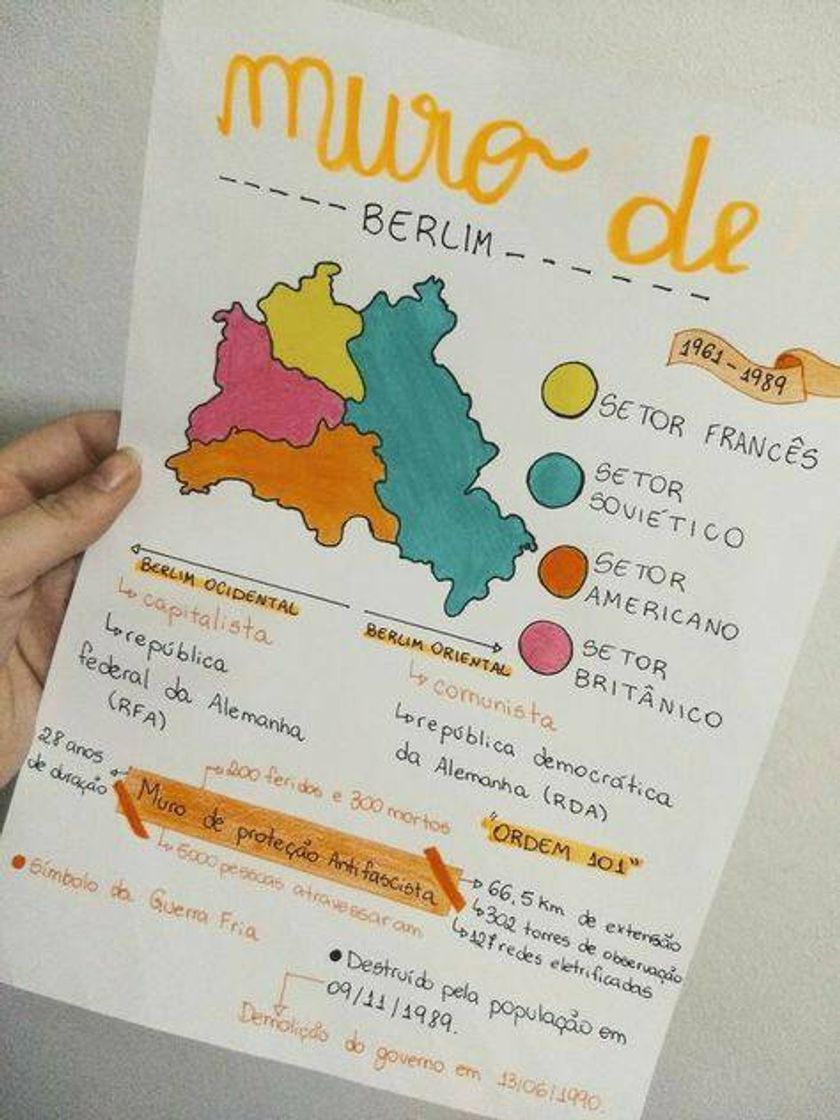 muro de
BERLIM
1961-1989
SETOR FRANCÊS
SETOR
SOVIÉTICO
SETOR
AMERICANO
SETOR
BRITÂNICO
BERLIM OCIDENTAL
capitalista
república
federal da Alemanha
(RFA)
BERLIM ORIENTAL
comunista
república democrática
da Alemanha (RDA)
28 anos
de duração
200 feridos e 300 mortos
Muro de proteção Antifascista
5000 pessoas atravessaram
"ORDEM 101"
66,5 km de extensão
302 torres de observação
127 redes eletrificadas
Símbolo da Guerra Fria
Destruído pela população em
09/11/1989.
Demolição do governo em 13/06/1990.